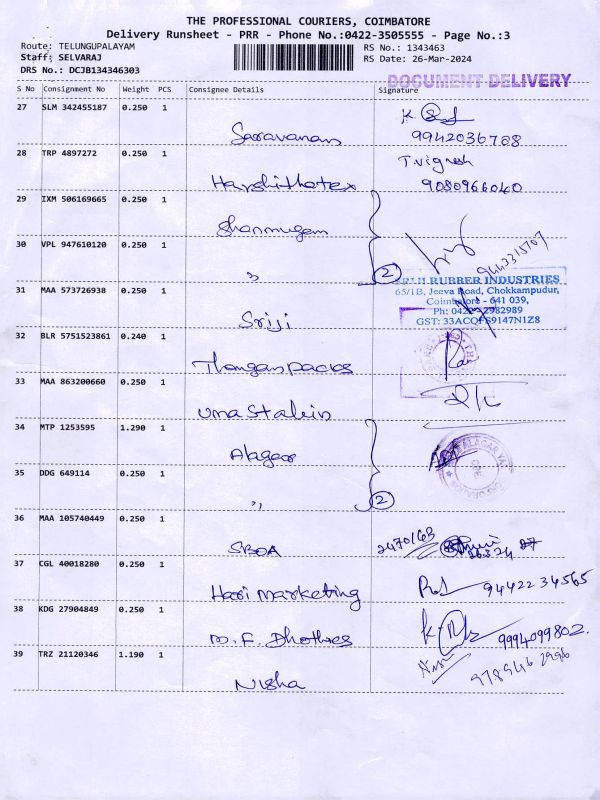 THE PROFESSIONAL COURIERS, COIMBATORE
Delivery Runsheet - PRR - Phone No.:0422-3505555 - Page No.:3
Route: TELUNGUPALAYAM RS No.: 1343463
Staff: SELVARAJ RS Date: 26-Mar-2024
DRS No.: DCJB134346303
DOCUMENT DELIVERY
S No Consignment No Weight PCS Consignee Details Signature
27 SLM 342455187 0.250 1
Saravanan 9942036768
28 TRP 4897272 0.250 1 T.vignesh
Harshithatex 9080966040
29 IXM 506169665 0.250 1
Shanmugam
30 VPL 947610120 0.250 1
" 2 9443315707
SRIJI RUBBER INDUSTRIES
65/1B, Jeeva Road, Chokkampudur,
31 MAA 573726938 0.250 1 Coimbatore - 641 039,
Ph: 0422-2982989
Sriji GST: 33ACQFS9147N1Z8
32 BLR 5751523861 0.240 1
Thanganpacks
33 MAA 863200660 0.250 1
Uma Stalin
34 MTP 1253595 1.290 1
Alagar
35 DDG 649114 0.250 1
" 2
36 MAA 105740449 0.250 1
SBOA 2470163
37 CGL 40018280 0.250 1
Hari Marketing 9442234565
38 KDG 27904849 0.250 1
M.F. Dhothies 9994099802.
39 TRZ 21120346 1.190 1
Nisha 9789462996